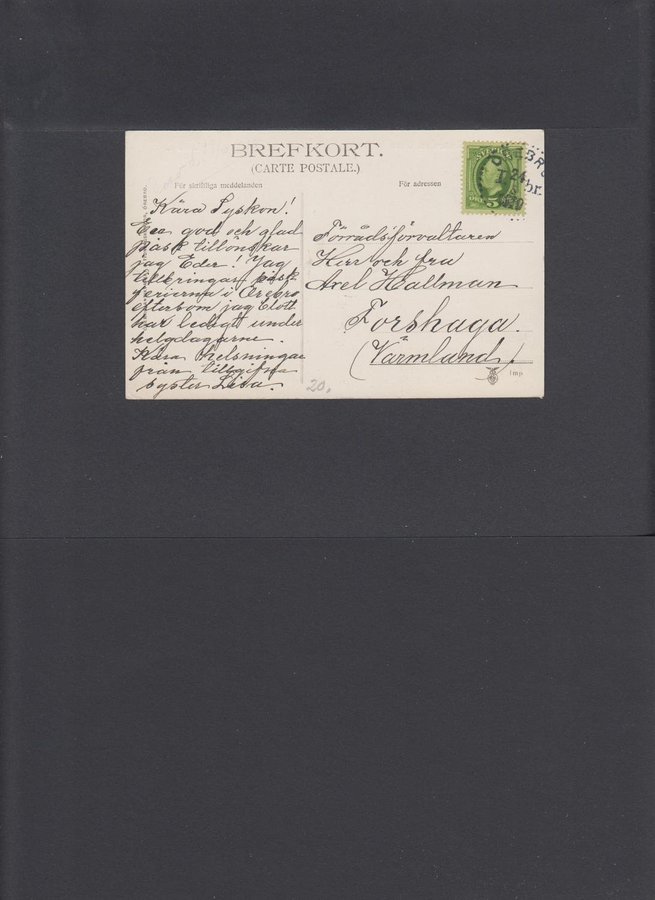 BREFKORT.
(CARTE POSTALE.)
För skriftliga meddelanden
För adressen
SVERIGE
5
ÖREBRO
24
br.
Kära Syskon!
En god och glad
påsk tillönskar
jag Eder! Jag
tillbringar påsk-
ferierna i Örebro
efterbom jag blott
har ledigt under
helgdagarne.
Kära helsningar
från tillgifna
syster Lisa.
Förrådsförvaltaren
Herr och fru
Axel Hallman
Forshaga.
(Värmland.)
20.
Imp.
ÖREBRO.